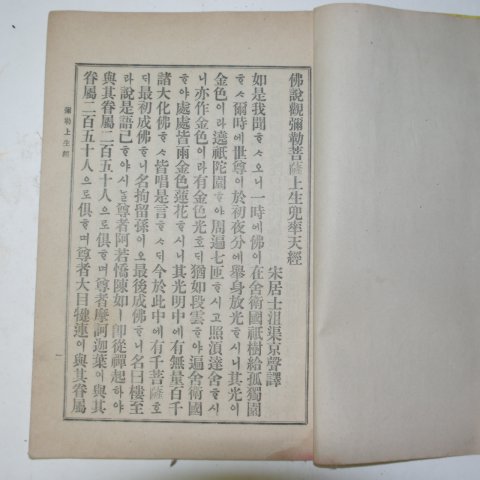 佛說觀彌勒菩薩上生兜率天經
宋居士沮渠京聲譯
如是我聞ᄒᆞᄉᆞ오니一時에佛이在舍衛國祇樹給孤獨園
ᄒᆞᄉᆞ爾時에世尊이於初夜分에擧身放光ᄒᆞ시니其光이
金色이라遶祇陀園ᄒᆞ야周遍七匝ᄒᆞ시고照須達舍ᄒᆞ시
니亦作金色이라有金色光호ᄃᆡ猶如段雲ᄒᆞ야遍舍衛國
ᄒᆞ야處處皆雨金色蓮花ᄒᆞ시니其光明中에有無量百千
諸大化佛ᄒᆞᄉᆞ皆唱是言ᄒᆞᄉᆞᄃᆡ今於此中에有千菩薩호
ᄃᆡ最初成佛ᄒᆞ니名拘留孫이오最後成佛ᄒᆞ니名曰樓至
라說是語已ᄒᆞ야시ᄂᆞᆯ尊者阿若憍陳如ㅣ卽從禪起ᄒᆞ야
與其眷屬二百五十人으로俱ᄒᆞ며尊者摩訶迦葉이與其
眷屬二百五十人으로俱ᄒᆞ며尊者大目犍連이與其眷屬
彌勒上生經
一